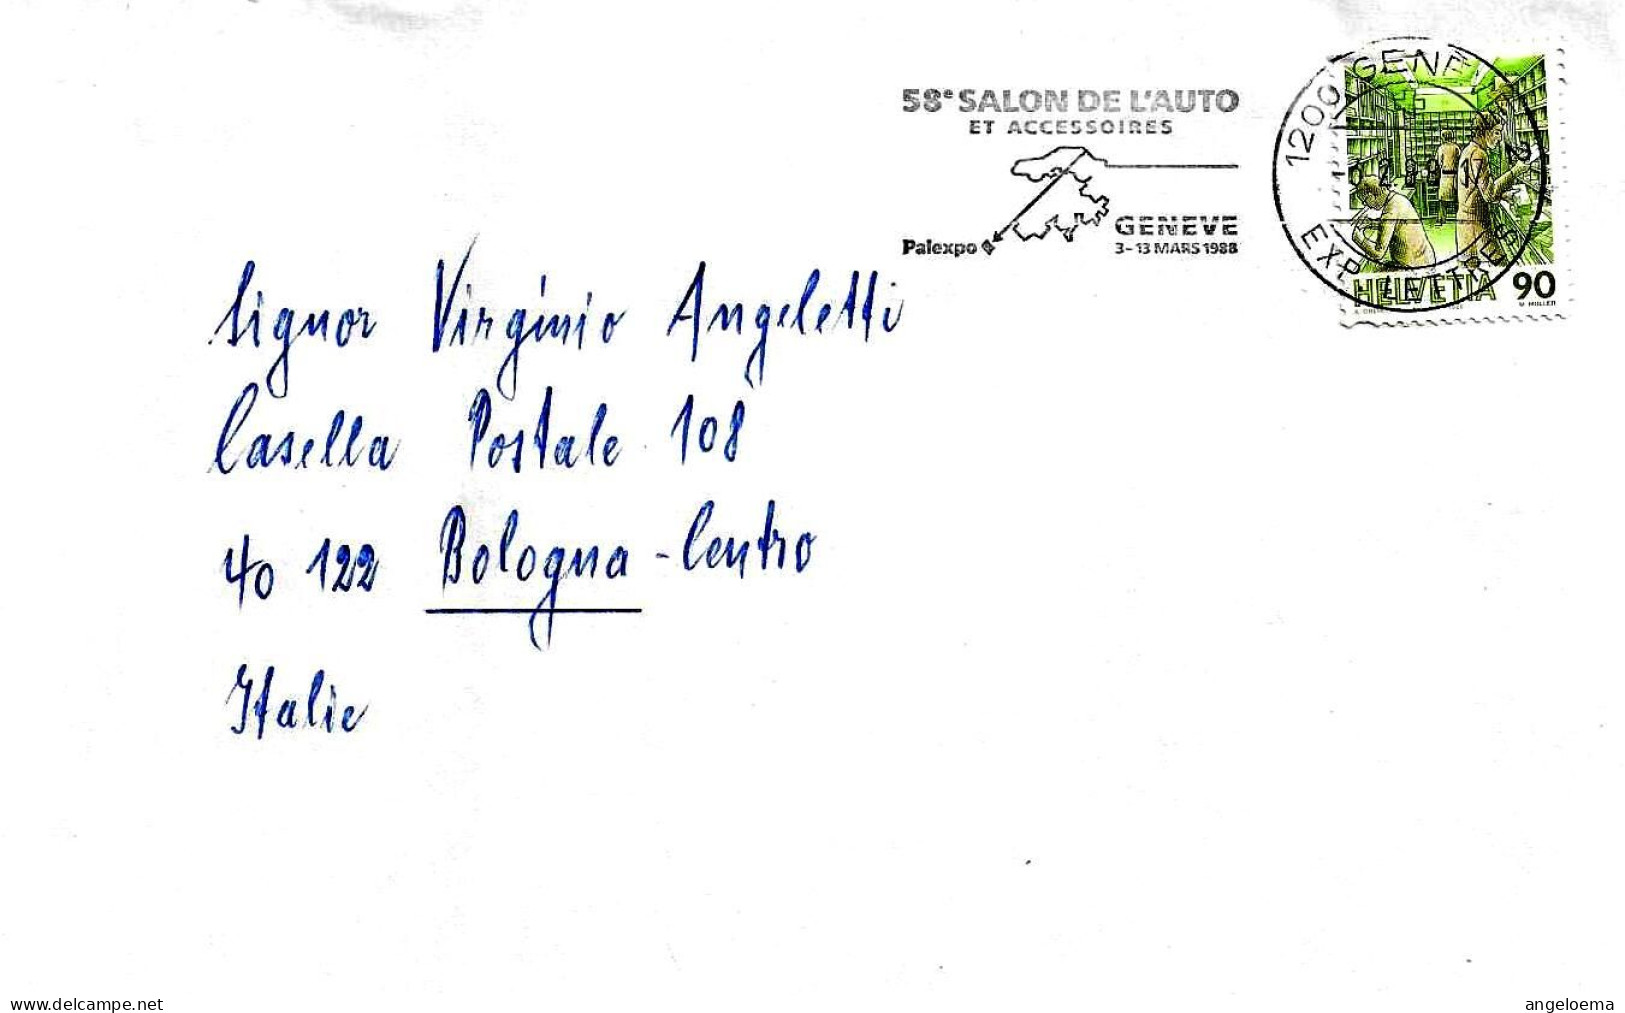 58e SALON DE L'AUTO
ET ACCESSOIRES
GENEVE
3-13 MARS 1988
Palexpo
1200 GENÈVE
EXP. LETTRES
HELVETIA 90
Signor Virginio Angeletti
Casella Postale 108
40 122 Bologna - Centro
Italie
www.delcampe.net
angeloema